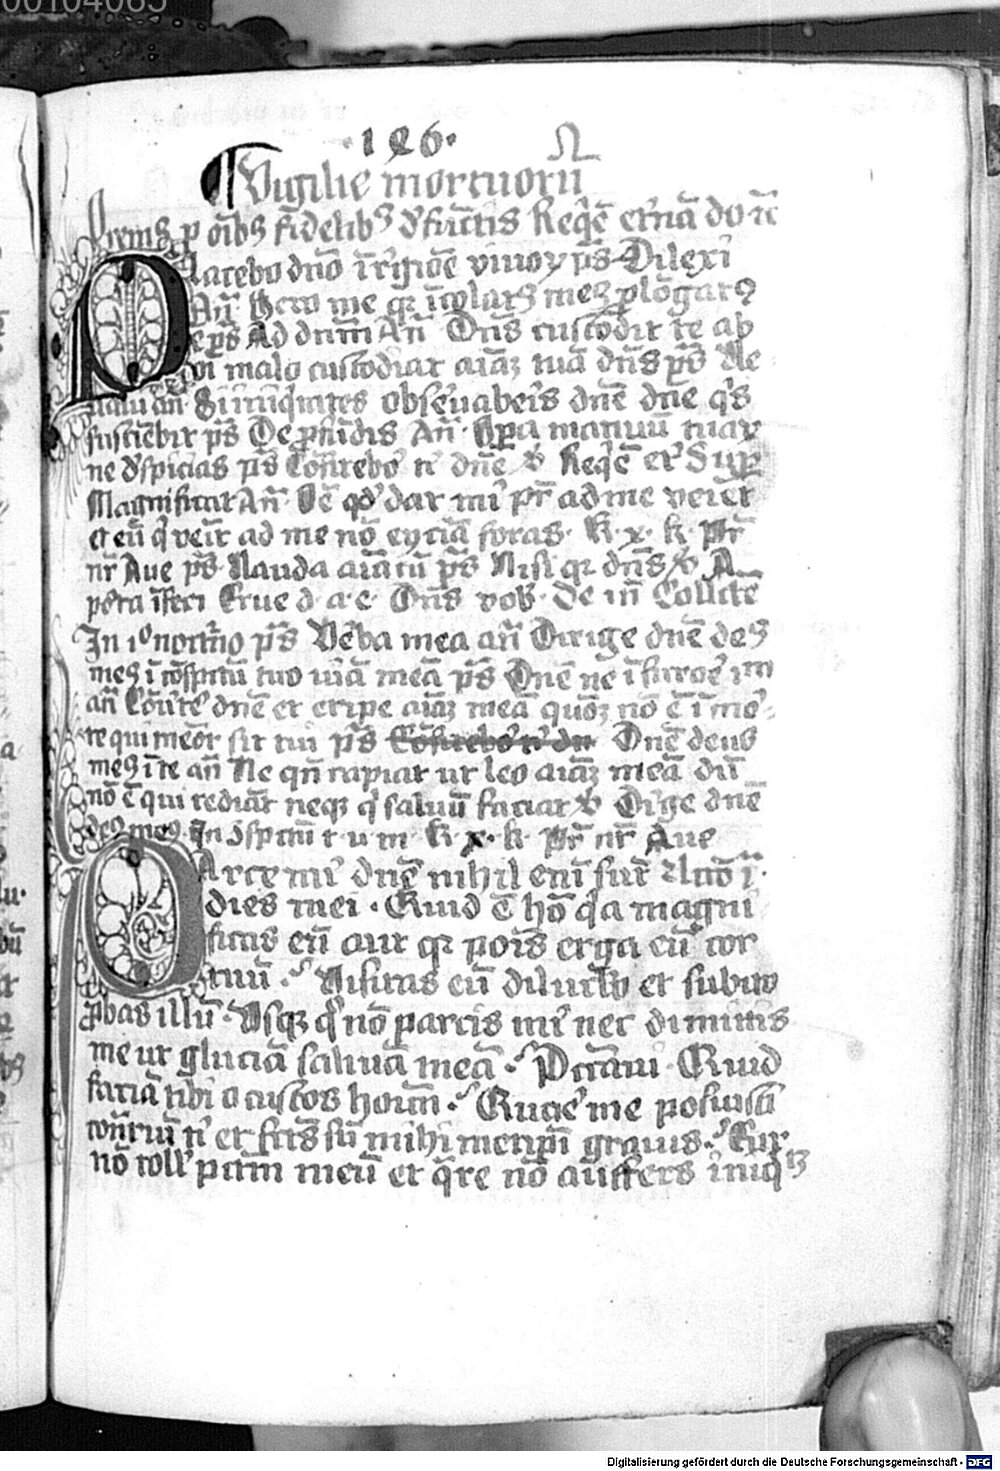 00104065
·126·
Vigilie mortuorū
p oībꝫ fidelibꝫ dfūctis Reqē eternā do
Placebo dno ī rigiōe viuoꝝ ps Dilexi
An̄ Heu me qr īcolatꝫ meꝫ plōgatꝫ
ps Ad dnm An̄ Dns custodit te ab
oi malo custodiat aiāz tuā dns ps Le
uaui an̄ Si iniqitates obseruabeis dnē dne qs
sustiēbit ps De pfūdis An̄ Opa manuū tuaꝝ
ne dspicias ps Confitebor ti dnē Reqē et Sup
Magnificat An̄ Oē qd dat mi pr ad me veiet
et eū q veit ad me nō eyciā foras · k · x · k · Pr
nr Aue ps Lauda aīa ps Nisi qr dns A
porta īferi Erue d · a · e · Dns vob · De Collcte
In 1º nocturno ps Verba mea an̄ Dirige dnē deꝫ
meꝫ ī cōspectu tuo uiā meā ps Dnē ne ī furore
an̄ Cōuertere dnē et eripe aiāz meā quoz nō ē ī mor
te qui memor sit tui ps Confitebor ti dn Dnē deus
meꝫ ī te an̄ Ne qn rapiat ut leo aiāz meā dū
nō ē qui rediāt neqz q saluū faciat Dirige dnē
deꝫ meꝫ In cōspectu t · u · m · k · x · k · Pr nr Aue
Parce mi dnē nihil eni sūt
dies mei · Quid ē hō qa magni
ficas eū aut qr pōis erga eū cor
tuū · Visitas eū diluclo et subito
pbas illū · Vsqz q nō parcis mi nec dimittis
me ut gluciā saliuā meā · Peccaui · Quid
faciā tibi o custos hoim · Quare me posuisti
cōtriū ti et fcūs sū mihimetipi grauis · Cur
nō toll pctm meū et qre nō auffers iniq
Digitalisierung gefördert durch die Deutsche Forschungsgemeinschaft - DFG